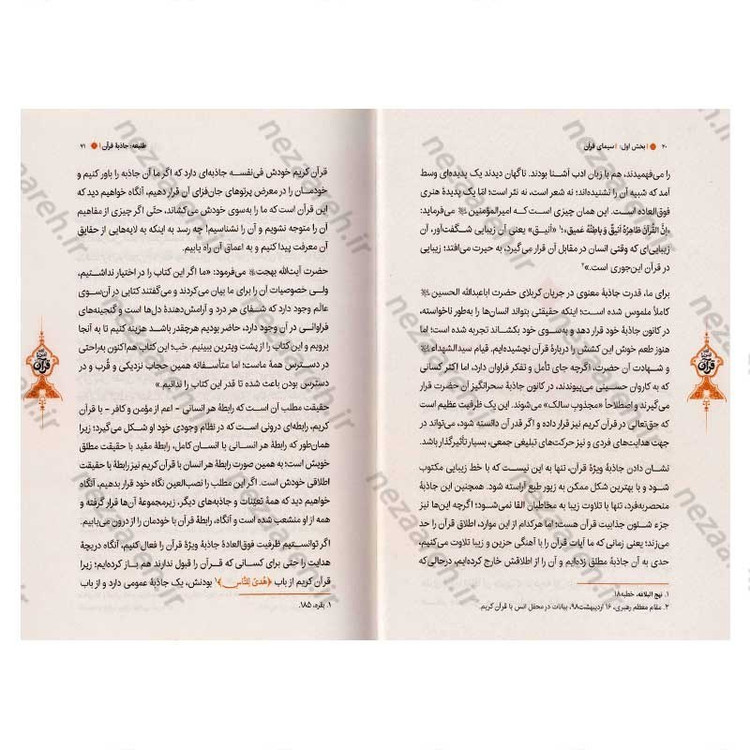 ۲۰ | بخش اول: | سیمای قرآن
را می‌فهمیدند، هم با زبان ادب آشنا بودند. ناگهان دیدند یک پدیده‌ای وسط
آمد که شبیه آن را نشنیده‌اند؛ نه شعر است، نه نثر است؛ امّا یک پدیدهٔ هنری
فوق‌العاده است. این همان چیزی است که امیرالمؤمنین می‌فرماید:
«إِنَّ القُرآنَ ظاهِرُهُ أَنیقٌ وَ باطِنُهُ عَمیق،»¹ «أنیق» یعنی آن زیبایی شگفت‌آور، آن
زیبایی‌ای که وقتی انسان در مقابل آن قرار می‌گیرد، به حیرت می‌افتد؛ زیبایی
در قرآن این‌جوری است.»²
برای ما، قدرت جاذبهٔ معنوی در جریان کربلای حضرت اباعبدالله الحسین
کاملاً ملموس شده است؛ اینکه حقیقتی بتواند انسان‌ها را به‌طور ناخواسته،
در کانون جاذبهٔ خود قرار دهد و به‌سوی خود بکشاند تجربه شده است؛ اما
هنوز طعم خوش این کشش را دربارهٔ قرآن نچشیده‌ایم. قیام سیدالشهداء
و شهادت آن حضرت، اگرچه جای تأمل و تفکر فراوان دارد، اما اکثر کسانی
که به کاروان حسینی می‌پیوندند، در کانون جاذبهٔ سحرانگیز آن حضرت قرار
می‌گیرند و اصطلاحاً «مجذوب سالک» می‌شوند. این یک ظرفیت عظیم است
که حق‌تعالی در قرآن کریم نیز قرار داده و اگر قدر آن دانسته شود، می‌تواند در
جهت هدایت‌های فردی و نیز حرکت‌های تبلیغی جمعی، بسیار تأثیرگذار باشد.
نشان دادن جاذبهٔ ویژهٔ قرآن، تنها به این نیست که با خط زیبایی مکتوب
شود و با بهترین شکل ممکن به زیور طبع آراسته شود. همچنین این جاذبهٔ
منحصربه‌فرد، تنها با تلاوت زیبا به مخاطبان القا نمی‌شود؛ اگرچه این‌ها نیز
جزء شئون جذابیت قرآن هست؛ اما هرکدام از این موارد، اطلاق قرآن را حد
می‌زند؛ یعنی زمانی که ما آیات قرآن را با آهنگی حزین و زیبا تلاوت می‌کنیم،
حدی به آن جاذبهٔ مطلق زده‌ایم و آن را از اطلاقش خارج کرده‌ایم، درحالی‌که
۱. نهج البلاغه، خطبه۱۸
۲. مقام معظم رهبری، ۱۶ اردیبهشت۹۸، بیانات در محفل انس با قرآن کریم.
طلیعه: جاذبهٔ قرآن | ۲۱
قرآن کریم خودش فی‌نفسه جاذبه‌ای دارد که اگر ما آن جاذبه را باور کنیم و
خودمان را در معرض پرتوهای جان‌فزای آن قرار دهیم، آنگاه خواهیم دید که
این قرآن است که ما را به‌سوی خودش می‌کشاند، حتی اگر چیزی از مفاهیم
آن را متوجه نشویم و آن را نشناسیم! چه رسد به اینکه به لایه‌هایی از حقایق
آن معرفت پیدا کنیم و به اعماق آن راه یابیم.
حضرت آیت‌الله بهجت می‌فرمود: «ما اگر این کتاب را در اختیار نداشتیم،
ولی خصوصیات آن را برای ما بیان می‌کردند و می‌گفتند کتابی در آن‌سوی
عالم وجود دارد که شفای هر درد و آرامش‌دهندهٔ دل‌ها است و گنجینه‌های
فراوانی در آن وجود دارد، حاضر بودیم هرچقدر باشد هزینه کنیم تا به آنجا
برویم و این کتاب را از پشت ویترین ببینیم. خب؛ این کتاب هم‌اکنون به‌راحتی
در دسترس همهٔ ماست؛ اما متأسفانه همین حجاب نزدیکی و قُرب و در
دسترس بودن باعث شده تا قدر این کتاب را ندانیم.»
حقیقت مطلب آن است که رابطهٔ هر انسانی - اعم از مؤمن و کافر - با قرآن
کریم، رابطه‌ای درونی است که در نظام وجودی خود او شکل می‌گیرد؛ زیرا
همان‌طور که رابطهٔ هر انسانی با انسان کامل، رابطهٔ مقید با حقیقت مطلق
خویش است؛ به همین صورت رابطهٔ هر انسان با قرآن کریم نیز رابطهٔ با حقیقت
اطلاقی خودش است. اگر این مطلب را نصب‌العین نگاه خود قرار بدهیم، آنگاه
خواهیم دید که همهٔ تعیّنات و جاذبه‌های دیگر، زیرمجموعهٔ آن‌ها قرار گرفته و
همه از او منشعب شده است و آنگاه، رابطهٔ قرآن با خودمان را از درون می‌یابیم.
اگر توانستیم ظرفیت فوق‌العادهٔ جاذبهٔ ویژهٔ قرآن را فعال کنیم، آنگاه دریچهٔ
هدایت را حتی برای کسانی که قرآن را قبول ندارند هم باز کرده‌ایم؛ زیرا
قرآن کریم از باب ﴿هُدىً لِلنّاسِ﴾¹ بودنش، یک جاذبهٔ عمومی دارد و از باب
۱. بقره، ۱۸۵.
قرآن
قرآن
nezaareh.ir